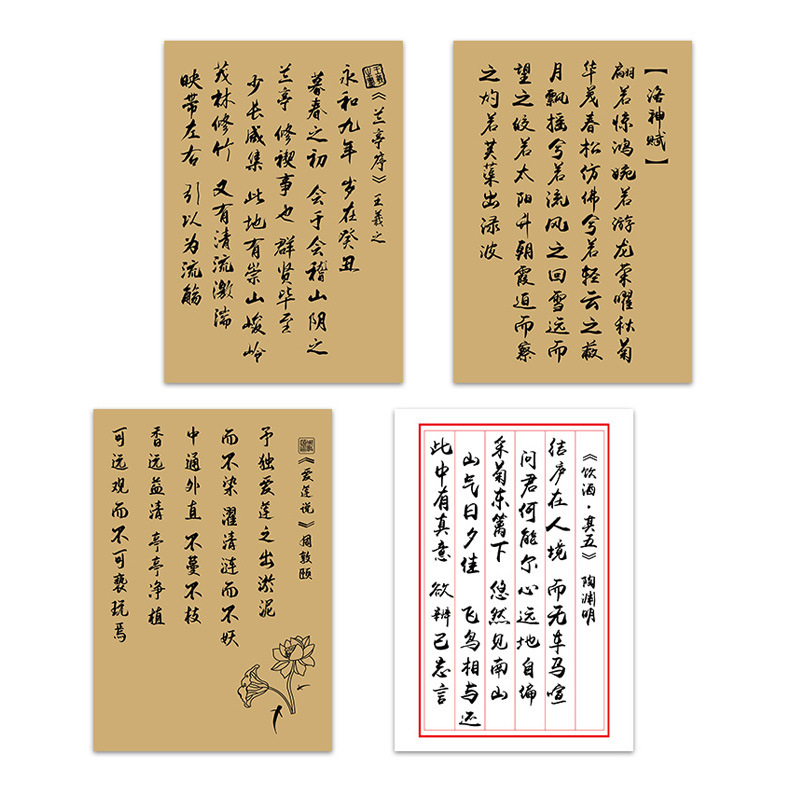 《兰亭序》王羲之
永和九年 岁在癸丑
暮春之初 会于会稽山阴之
兰亭 修禊事也 群贤毕至
少长咸集 此地有崇山峻岭
茂林修竹 又有清流激湍
映带左右 引以为流觞
【洛神赋】
翩若惊鸿婉若游龙荣曜秋菊
华茂春松仿佛兮若轻云之蔽
月飘摇兮若流风之回雪远而
望之皎若太阳升朝霞迫而察
之灼若芙蕖出渌波
《爱莲说》周敦颐
予独爱莲之出淤泥
而不染 濯清涟而不妖
中通外直 不蔓不枝
香远益清 亭亭净植
可远观而不可亵玩焉
《饮酒·其五》 陶渊明
结庐在人境 而无车马喧
问君何能尔 心远地自偏
采菊东篱下 悠然见南山
山气日夕佳 飞鸟相与还
此中有真意 欲辨已忘言